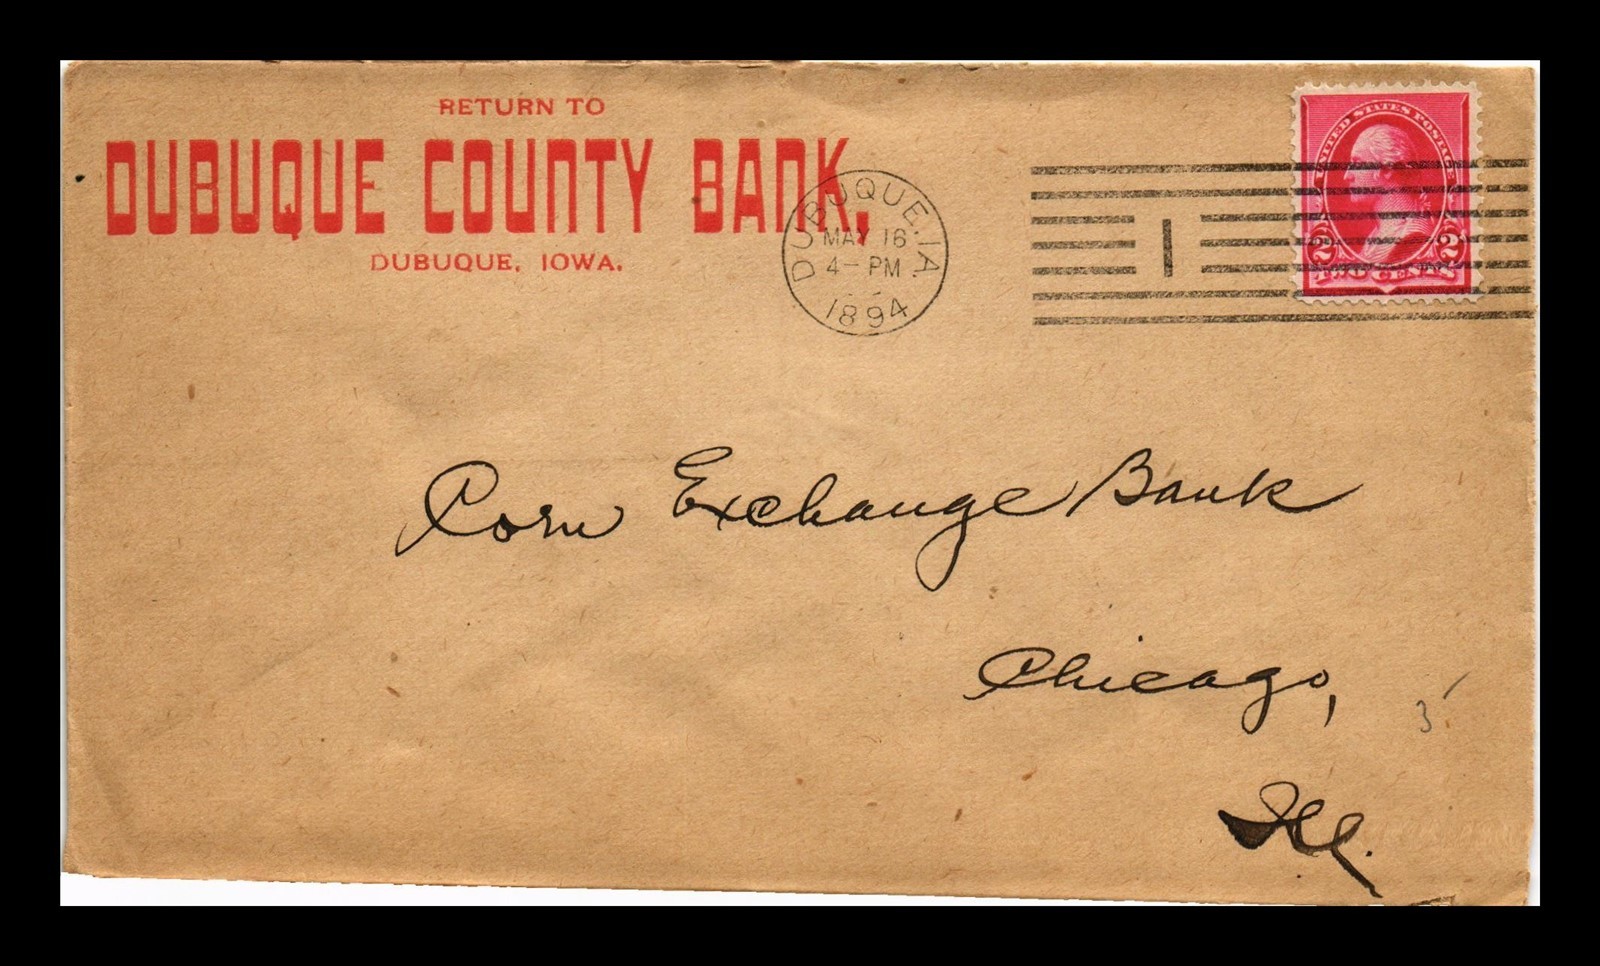 RETURN TO
DUBUQUE COUNTY BANK,
DUBUQUE, IOWA.
DUBUQUE, IA.
MAY 16
4- PM
1894
1
UNITED STATES POSTAGE
2 2
TWO CENTS
Corn Exchange Bank
Chicago,
3
Ill.